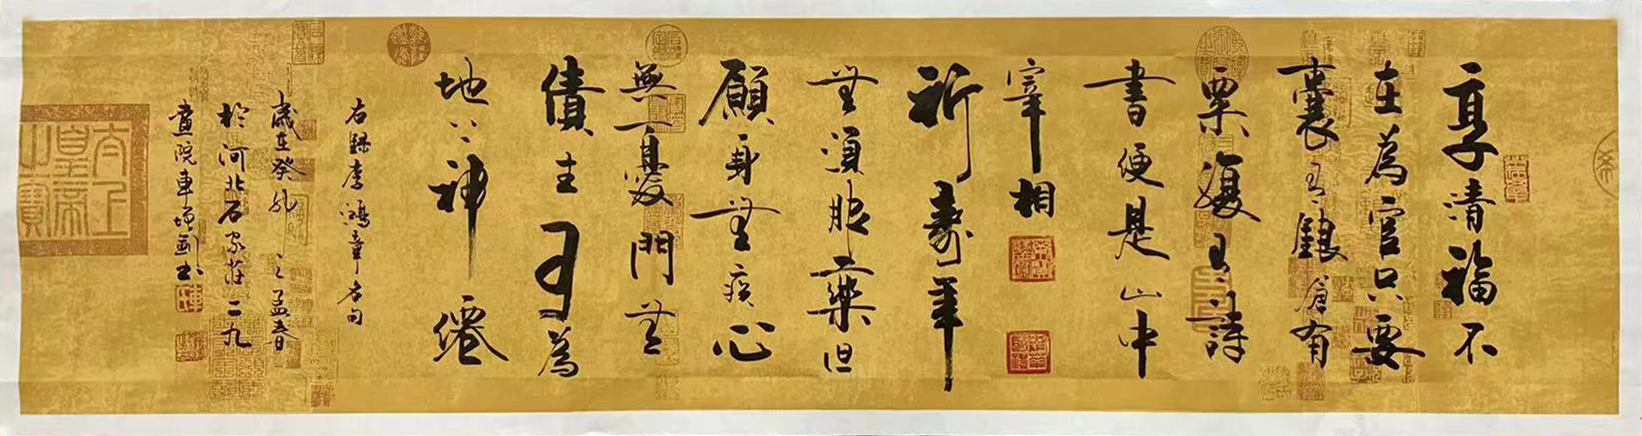 享清福不
在為官只要
囊有銀倉有
粟腹有詩
書便是山中
宰相
祈壽年
無須服藥但
願身無疾心
無憂門無
債主可為
地上神僊
右錄李鴻章名句
歲在癸卯之孟春
於河北石家莊二九
畫院車增劍書
太上皇帝之寶